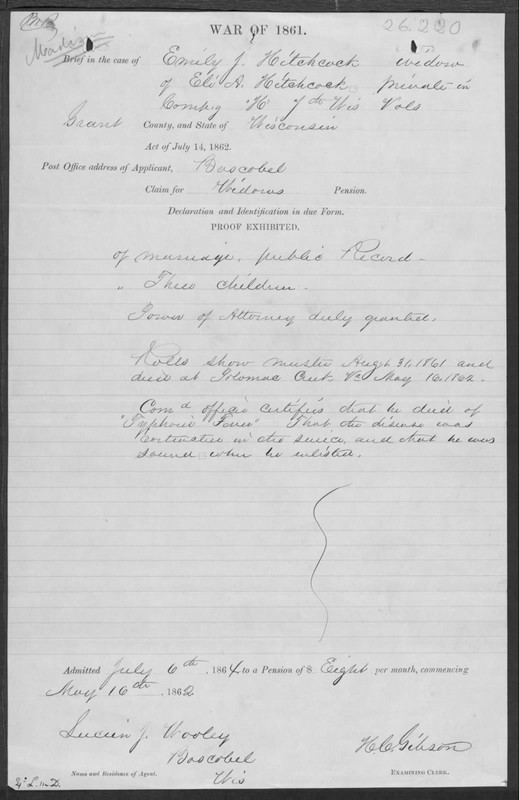 WAR OF 1861.
26.220
Madison
Brief in the case of Emily J. Hitchcock widow
of Eli A. Hitchcock private in
Compy "H" 7th Wis Vols
Grant County, and State of Wisconsin
Act of July 14, 1862.
Post Office address of Applicant, Boscobel
Claim for Widows Pension.
Declaration and Identification in due Form.
PROOF EXHIBITED.
of marriage, public Record.
" Three children.
Power of Attorney duly granted.
Rolls show muster Augt 31, 1861 and
died at Potomac Creek Va May 16, 1862.
Comd officer certifies that he died of
"Typhoid Fever" That the disease was
contracted in the service, and that he was
sound when he enlisted.
Admitted July 6th, 1864 to a Pension of $ Eight per month, commencing
May 16th, 1862
Lucien J. Wooley
Boscobel
Wis
H. C. Gibson
Name and Residence of Agent.
EXAMINING CLERK.